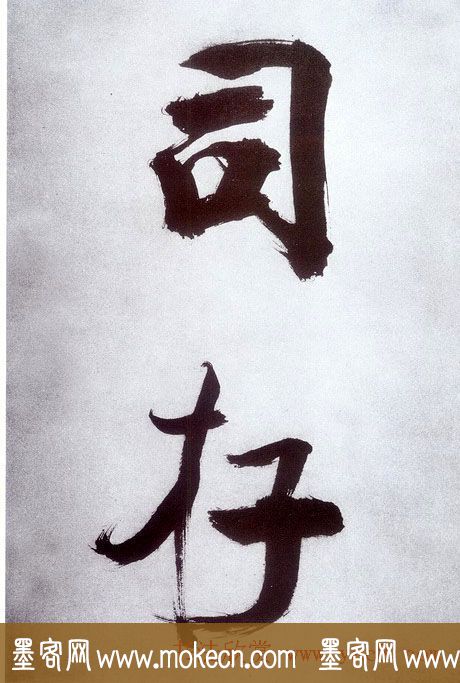 司
存
墨客网www.mokecn.com 墨客网www.